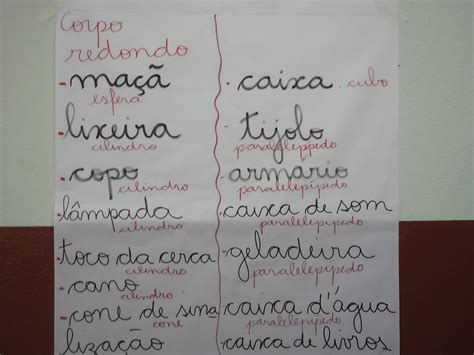 Corpo
redondo
- maçã
esfera
- lixeira
cilindro
- copo
cilindro
- lâmpada
cilindro
- toco da cerca
cilindro
- cano
cilindro
- cone de sina
cone
lização
- caixa . cubo
- tijolo
paralelepípedo
- armário
paralelepípedo
caixa de som
paralelepípedo
- geladeira
paralelepípedo
caixa d'água
paralelepípedo
caixa de livros